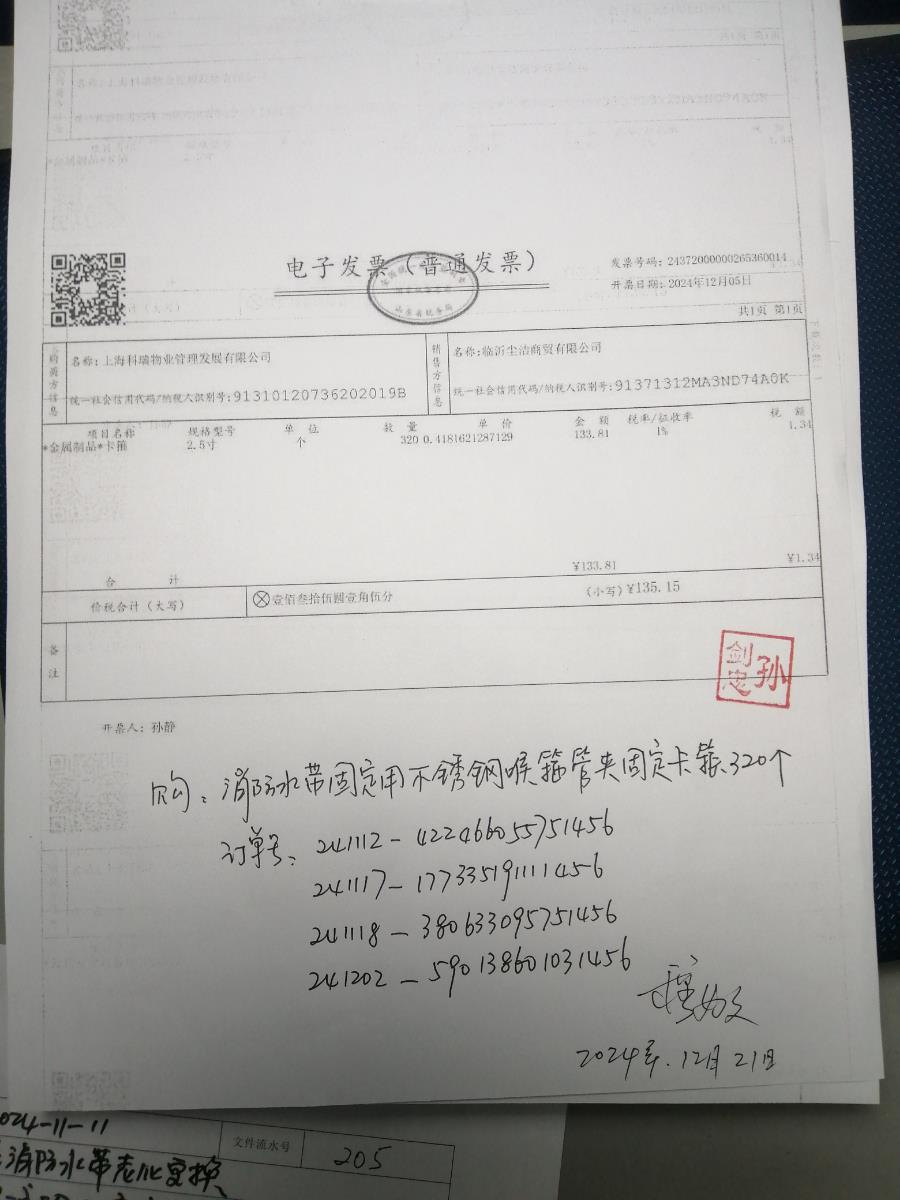 名称:上海科瑞物业管理发展有限公司
*金属制品*卡箍
1.34
电子发票（普通发票）
山东省税务局
发票号码：24372000000265360014
开票日期：2024年12月05日
共1页 第1页
购买方信息
名称:上海科瑞物业管理发展有限公司
统一社会信用代码/纳税人识别号:91310120736202019B
销售方信息
名称:临沂尘洁商贸有限公司
统一社会信用代码/纳税人识别号:91371312MA3ND74A0K
项目名称 规格型号 单位 数量 单价 金额 税率/征收率 税额
*金属制品*卡箍 2.5寸 个 320 0.4181621287129 133.81 1% 1.34
合计 ¥133.81 ¥1.34
价税合计（大写） ⊗壹佰叁拾伍圆壹角伍分 （小写）¥135.15
备注
孙剑忠
开票人：孙静
购：消防水带固定用不锈钢喉箍管夹固定卡箍.320个
订单号：241112-422466055751456
241117-177335191111456
241118-380633095751456
241202-590138601031456
2024年.12月21日
024-11-11
文件流水号 205
消防水带老化更换